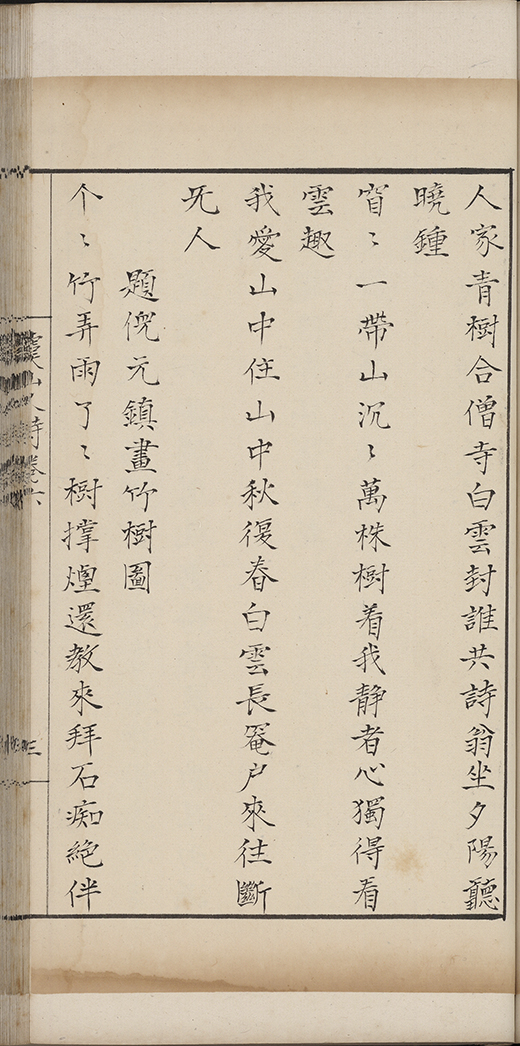 人家青樹合僧寺白雲封誰共詩翁坐夕陽聽
曉鍾
窅〻一帶山沉〻萬株樹着我靜者心獨得看
雲趣
我愛山中住山中秋復春白雲長罨户來往斷
旡人
題倪元鎮畫竹樹圖
个〻竹弄雨了〻樹撑煙還教來拜石痴絕伴
山人詩卷六
三